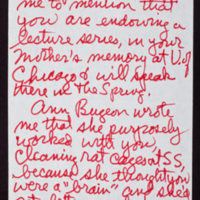 me to mention that
you are endowing a
lecture series, in your
Mother's memory at U of
Chicago & will speak
there in the Spring.
Ann Bugeon wrote
me that she purposely
worked with you
cleaning rat cages at SS
because she thought you
were a "brain" and she'd